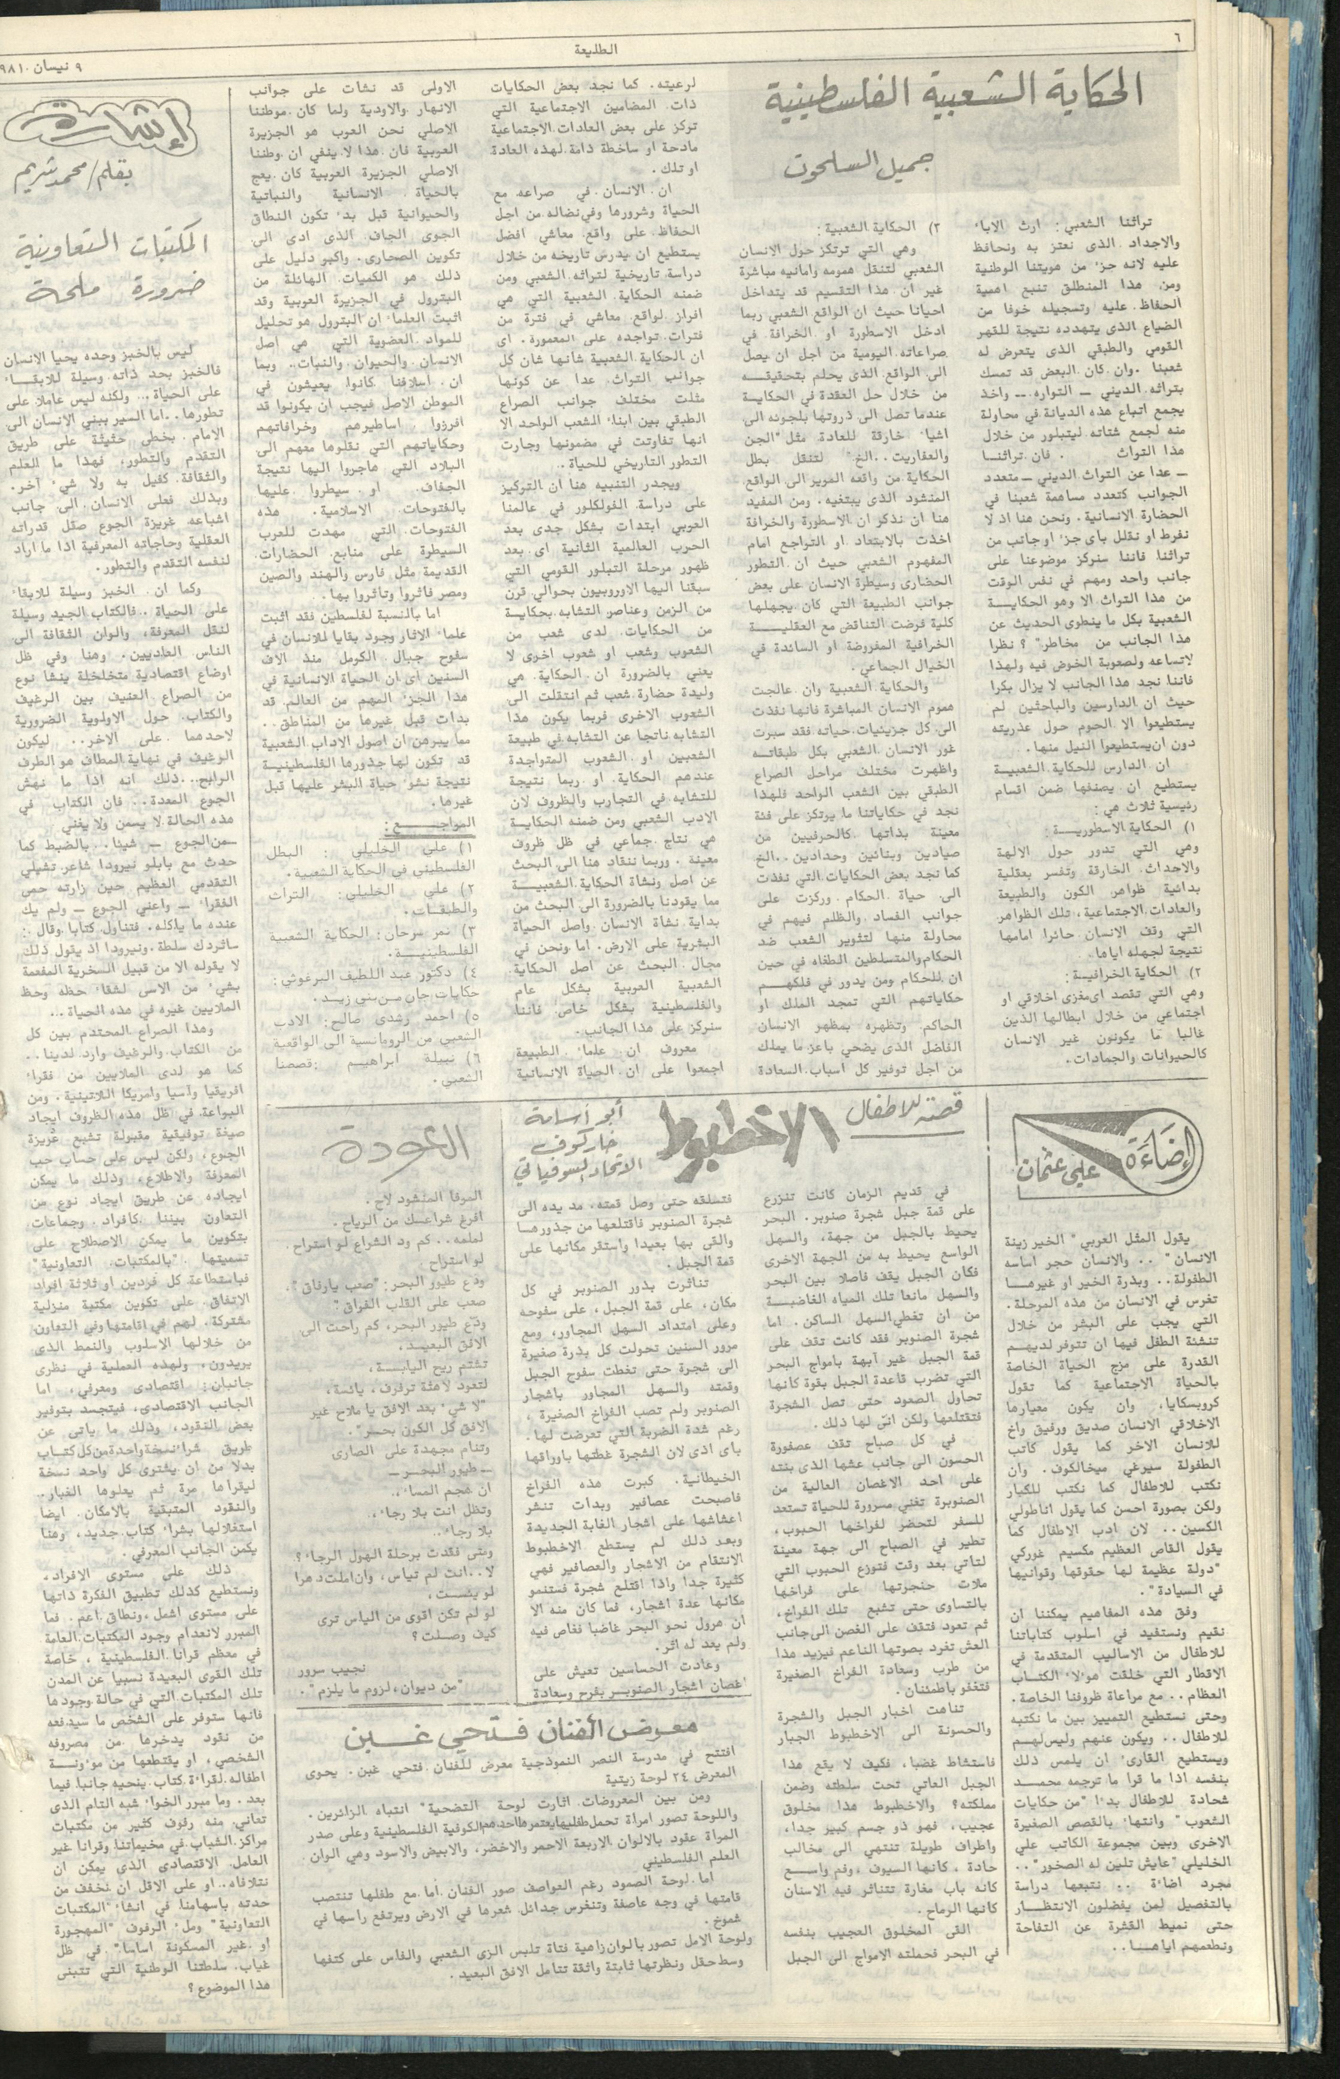 ٦
الطليعة
٩ نيسان ١٩٨١
الحكاية الشعبية الفلسطينية
جميل السلحوت
تراثنا الشعبي : ارث الاباء
والاجداد الذى نعتز به ونحافظ
عليه لانه جزء من هويتنا الوطنية
ومن هذا المنطلق تنبع اهمية
الحفاظ عليه وتسجيله خوفا من
الضياع الذى يتهدده نتيجة للقهر
القومي والطبقي الذى يتعرض له
شعبنا . وان كان البعض قد تمسك
بتراثه الديني ــ التواره ــ واخذ
يجمع اتباع هذه الديانة في محاولة
منه لجمع شتاته ليتبلور من خلال
هذا التراث . فان تراثنا
ــ عدا عن التراث الديني ــ متعدد
الجوانب كتعدد مساهمة شعبنا في
الحضارة الانسانية . ونحن هنا اذ لا
نفرط او نقلل باى جزء او جانب من
تراثنا فاننا سنركز موضوعنا على
جانب واحد ومهم في نفس الوقت
من هذا التراث الا وهو الحكاية
الشعبية بكل ما ينطوى الحديث عن
هذا الجانب من مخاطر" ؟ نظرا
لاتساعه ولصعوبة الخوض فيه ولهذا
فاننا نجد هذا الجانب لا يزال بكرا
حيث ان الدارسين والباحثين لم
يستطيعوا الا الحوم حول عذريته
دون ان يستطيعوا النيل منها .
ان الدارس للحكاية الشعبية
يستطيع ان يصنفها ضمن اقسام
رئيسية ثلاث هي :
١) الحكاية الاسطورية :
وهي التي تدور حول الالهة
والاحداث الخارقة وتفسر بعقلية
بدائية ظواهر الكون والطبيعة
والعادات الاجتماعية ، تلك الظواهر
التي وقف الانسان حائرا امامها
نتيجة لجهله اياها .
٢) الحكاية الخرافية :
وهي التي تقصد اى مغزى اخلاقي او
اجتماعي من خلال ابطالها الذين
غالبا ما يكونون غير الانسان
كالحيوانات والجمادات .
٣) الحكاية الشعبية :
وهي التي ترتكز حول الانسان
الشعبي لتنقل همومه وامانيه مباشرة
غير ان هذا التقسيم قد يتداخل
احيانا حيث ان الواقع الشعبي ربما
ادخل الاسطورة او الخرافة في
صراعاته اليومية من اجل ان يصل
الى الواقع الذى يحلم بتحقيقه
من خلال حل العقدة في الحكاية
عندما تصل الى ذروتها بلجوئه الى
اشياء خارقة للعادة مثل "الجن
والعفاريت .. الخ" لتنقل بطل
الحكاية من واقعه المرير الى الواقع
المنشود الذى يبتغيه . ومن المفيد
هنا ان نذكر ان الاسطورة والخرافة
اخذت بالابتعاد او التراجع امام
المفهوم الشعبي حيث ان التطور
الحضارى وسيطرة الانسان على بعض
جوانب الطبيعة التي كان يجهلها
كلية فرضت التناقض مع العقلية
الخرافية المفروضة او السائدة في
الخيال الجماعي .
والحكاية الشعبية وان عالجت
هموم الانسان المباشرة فانها نفذت
الى كل جزئيات حياته فقد سبرت
غور الانسان الشعبي بكل طبقاته
واظهرت مختلف مراحل الصراع
الطبقي بين الشعب الواحد فلهذا
نجد في حكاياتنا ما يرتكز على فئة
معينة بذاتها كالحرفيين من
صيادين وبنائين وحدادين .. الخ
كما نجد بعض الحكايات التي نفذت
الى حياة الحكام وركزت على
جوانب الفساد والظلم فيهم في
محاولة منها لتثوير الشعب ضد
الحكام والمتسلطين الطغاه في حين
ان للحكام ومن يدور في فلكهم
حكاياتهم التي تمجد الملك او
الحاكم وتظهره بمظهر الانسان
الفاضل الذى يضحي باعز ما يملك
من اجل توفير كل اسباب السعادة
لرعيته . كما نجد بعض الحكايات
ذات المضامين الاجتماعية التي
تركز على بعض العادات الاجتماعية
مادحة او ساخطة ذامة لهذه العادة
او تلك .
ان الانسان في صراعه مع
الحياة وشرورها وفي نضاله من اجل
الحفاظ على واقع معاشي افضل
يستطيع ان يدرس تاريخه من خلال
دراسة تاريخية لتراثه الشعبي ومن
ضمنه الحكاية الشعبية التي هي
افراز لواقع معاشي في فترة من
فترات تواجده على المعمورة . اى
ان الحكاية الشعبية شأنها شأن كل
جوانب التراث عدا عن كونها
مثلت مختلف جوانب الصراع
الطبقي بين ابناء الشعب الواحد الا
انها تفاوتت في مضمونها وجارت
التطور التاريخي للحياة .
ويجدر التنبيه هنا ان التركيز
على دراسة الفولكلور في عالمنا
العربي ابتدات بشكل جدى بعد
الحرب العالمية الثانية اى بعد
ظهور مرحلة التبلور القومي التي
سبقنا اليها الاوروبيون بحوالي قرن
من الزمن وعناصر التشابه بحكاية
من الحكايات لدى شعب من
الشعوب وشعب او شعوب اخرى لا
يعني بالضرورة ان الحكاية هي
وليدة حضارة شعب ثم انتقلت الى
الشعوب الاخرى فربما يكون هذا
التشابه ناتجا عن التشابه في طبيعة
الشعبين او الشعوب المتواجدة
عندهم الحكاية او ربما نتيجة
للتشابه في التجارب والظروف لان
الادب الشعبي ومن ضمنه الحكاية
هي نتاج جماعي في ظل ظروف
معينة . وربما ننقاد هنا الى البحث
عن اصل ونشاة الحكاية الشعبية
مما يقودنا بالضرورة الى البحث من
بداية نشاة الانسان واصل الحياة
البشرية على الارض . اما ونحن في
مجال البحث عن اصل الحكاية
الشعبية العربية بشكل عام
والفلسطينية بشكل خاص فاننا
سنركز على هذا الجانب .
معروف ان علماء الطبيعة
اجمعوا على ان الحياة الانسانية
الاولى قد نشات على جوانب
الانهار والاودية ولما كان موطننا
الاصلي نحن العرب هو الجزيرة
العربية فان هذا لا ينفي ان وطننا
الاصلي الجزيرة العربية كان يعج
بالحياة الانسانية والنباتية
والحيوانية قبل بدء تكون النطاق
الجوى الجاف الذى ادى الى
تكوين الصحارى . واكبر دليل على
ذلك هو الكميات الهائلة من
البترول في الجزيرة العربية وقد
اثبت العلماء ان البترول هو تحليل
للمواد العضوية التي هي اصل
الانسان والحيوان والنبات . وبما
ان اسلافنا كانوا يعيشون في
الموطن الاصل فيجب ان يكونوا قد
افرزوا اساطيرهم وخرافاتهم
وحكاياتهم التي نقلوها معهم الى
البلاد التي هاجروا اليها نتيجة
الجفاف او سيطروا عليها
بالفتوحات الاسلامية . هذه
الفتوحات التي مهدت للعرب
السيطرة على منابع الحضارات
القديمة مثل فارس والهند والصين
ومصر فأثروا وتأثروا بها .
اما بالنسبة لفلسطين فقد اثبت
علماء الاثار وجود بقايا للانسان في
سفوح جبال الكرمل منذ الاف
السنين اى ان الحياة الانسانية في
هذا الجزء المهم من العالم قد
بدات قبل غيرها من المناطق ..
مما يبرهن ان اصول الاداب الشعبية
قد تكون لها جذورها الفلسطينية
نتيجة نشوء حياة البشر عليها قبل
غيرها .
المراجع :
١) علي الخليلي : البطل
الفلسطيني في الحكاية الشعبية .
٢) علي الخليلي : التراث
والطبقات .
٣) نمر سرحان : الحكاية الشعبية
الفلسطينية .
٤) دكتور عبد اللطيف البرغوثي :
حكايات جان من بني زيد .
٥) احمد رشدى صالح : الادب
الشعبي من الرومانسية الى الواقعية
٦) نبيلة ابراهيم : قصصنا
الشعبي .
إشارة
بقلم / محمد شريم
المكتبات التعاونية
ضرورة ملحة
ليس بالخبز وحده يحيا الانسان
فالخبز بحد ذاته وسيلة للابقاء
على الحياة .. ولكنه ليس عاملا على
تطورها .. اما السير ببني الانسان الى
الامام بخطى حثيثة على طريق
التقدم والتطور ، فهذا ما العلم
والثقافة كفيل به ولا شيء آخر .
وبذلك فعلى الانسان الى جانب
اشباعه غريزة الجوع صقل قدراته
العقلية وحاجاته المعرفية اذا ما اراد
لنفسه التقدم والتطور .
وكما ان الخبز وسيلة للابقاء
على الحياة .. فالكتاب الجيد وسيلة
لنقل المعرفة ، والوان الثقافة الى
الناس العاديين . وهنا وفي ظل
اوضاع اقتصادية متخلخلة ينشأ نوع
من الصراع العنيف بين الرغيف
والكتاب حول الاولوية الضرورية
لاحدهما على الاخر .. ليكون
الرغيف في نهاية المطاف هو الطرف
الرابح .. ذلك انه اذا ما نهش
الجوع المعدة .. فان الكتاب في
هذه الحالة لا يسمن ولا يغني
ــ من الجوع ــ شيئا . بالضبط كما
حدث مع بابلو نيرودا شاعر تشيلي
التقدمي العظيم حين زارته حمى
الفقراء ــ واعني الجوع ــ ولم يك
عنده ما ياكله ، فتناول كتابا وقال :
سأثردك سلطة . ونيرودا اذ يقول ذلك
لا يقوله الا من قبيل السخرية المفعمة
بشيء من الاسى لشقاء حظه وحظ
الملايين غيره في هذه الحياة ..
وهذا الصراع المحتدم بين كل
من الكتاب والرغيف وارد لدينا ..
كما هو لدى الملايين من فقراء
افريقيا وآسيا وامريكا اللاتينية . ومن
البراعة في ظل هذه الظروف ايجاد
صيغة توفيقية مقبولة تشبع غريزة
الجوع ، ولكن ليس على حساب حب
المعرفة والاطلاع ، وذلك ما يمكن
ايجاده عن طريق ايجاد نوع من
التعاون بيننا كافراد وجماعات
بتكوين ما يمكن الاصطلاح على
تسميتها "بالمكتبات التعاونية"
فباستطاعة كل فردين او ثلاثة افراد
الاتفاق على تكوين مكتبة منزلية
مشتركة . لهم في اقامتها وفي التعاون
من خلالها الاسلوب والنمط الذى
يريدون ، ولهذه العملية في نظرى
جانبان : اقتصادى ومعرفي ، اما
الجانب الاقتصادى ، فيتجسد بتوفير
بعض النقود ، وذلك ما ياتي عن
طريق شراء نسخة واحدة من كل كتاب
بدلا من ان يشترى كل واحد نسخة
ليقرأها مرة ثم يعلوها الغبار .
والنقود المتبقية بالامكان ايضا
استغلالها بشراء كتاب جديد ، وهنا
يكمن الجانب المعرفي .
ذلك على مستوى الافراد ،
ونستطيع كذلك تطبيق الفكرة ذاتها
على مستوى اشمل ، ونطاق اعم . فما
المبرر لانعدام وجود المكتبات العامة
في معظم قرانا الفلسطينية ، خاصة
تلك القرى البعيدة نسبيا عن المدن
تلك المكتبات التي في حالة وجودها
فانها ستوفر على الشخص ما سيدفعه
من نقود يدخرها من مصروفه
الشخصي ، او يقتطعها من مؤونة
اطفاله لقراءة كتاب ينحيه جانبا فيما
بعد . وما مبرر الخواء شبه التام الذى
تعاني منه رفوف كثير من مكتبات
مراكز الشباب في مخيماتنا وقرانا غير
العامل الاقتصادى الذى يمكن ان
نتلافاه .. او على الاقل ان نخفف من
حدته باسهامنا في انشاء "المكتبات
التعاونية" وملء الرفوف "المهجورة
او غير المسكونة اساسا" في ظل
غياب سلطتنا الوطنية التي تتبنى
هذا الموضوع ؟
إضاءة
علي عثمان
يقول المثل العربي "الخير زينة
الانسان" .. والانسان حجر اساسه
الطفولة .. وبذرة الخير او غيرها
تغرس في الانسان من هذه المرحلة .
التي يجب على البشر من خلال
تنشئة الطفل فيها ان تتوفر لديهم
القدرة على مزج الحياة الخاصة
بالحياة الاجتماعية كما تقول
كروبسكايا ، وان يكون معيارها
الاخلاقي الانسان صديق ورفيق واخ
للانسان الاخر كما يقول كاتب
الطفولة سيرغي ميخالكوف . وان
نكتب للاطفال كما نكتب للكبار
ولكن بصورة احسن كما يقول اناطولي
الكسين .. لان ادب الاطفال كما
يقول القاص العظيم مكسيم غوركي
"دولة عظيمة لها حقوقها وقوانيها
في السيادة" .
وفق هذه المفاهيم يمكننا ان
نقيم ونستفيد في اسلوب كتاباتنا
للاطفال من الاساليب المتقدمة في
الاقطار التي خلقت هؤلاء الكتاب
العظام .. مع مراعاة ظروفنا الخاصة .
وحتى نستطيع التمييز بين ما نكتبه
للاطفال .. ويكون عنهم وليس لهم
ويستطيع القارىء ان يلمس ذلك
بنفسه اذا ما قرأ ما ترجمه محمد
شحادة للاطفال بدءا "من حكايات
الشعوب" وانتهاء بالقصص الصغيرة
الاخرى وبين مجموعة الكاتب علي
الخليلي "عايش تلين له الصخور" ..
مجرد اضاءة .. نتبعها دراسة
بالتفصيل لمن يفضلون الانتظار
حتى نميط القشرة عن التفاحة
ونطعمهم اياها ..
قصة للاطفال
الاخطبوط
أبو أسامة
خاركوف
الاتحاد السوفياتي
في قديم الزمان كانت تنزرع
على قمة جبل شجرة صنوبر . البحر
يحيط بالجبل من جهة ، والسهل
الواسع يحيط به من الجهة الاخرى
فكان الجبل يقف فاصلا بين البحر
والسهل مانعا تلك المياه الغاضبة
من ان تغطي السهل الساكن . اما
شجرة الصنوبر فقد كانت تقف على
قمة الجبل غير آبهة بامواج البحر
التي تضرب قاعدة الجبل بقوة كانها
تحاول الصعود حتى تصل الشجرة
فتقتلعها ولكن انّى لها ذلك .
في كل صباح تقف عصفورة
الحسون الى جانب عشها الذى بنته
على احد الاغصان العالية من
الصنوبرة تغني مسرورة للحياة تستعد
للسفر لتحضر لفراخها الحبوب ،
تطير في الصباح الى جهة معينة
لتأتي بعد وقت فتوزع الحبوب التي
ملات حنجرتها على فراخها
بالتساوى حتى تشبع تلك الفراخ ،
ثم تعود فتقف على الغصن الى جانب
العش تغرد بصوتها الناعم فيزيد هذا
من طرب وسعادة الفراخ الصغيرة
فتغفو باطمئنان .
تناهت اخبار الجبل والشجرة
والحسونة الى الاخطبوط الجبار
فاستشاط غضبا ، فكيف لا يقع هذا
الجبل العاتي تحت سلطته وضمن
مملكته ؟ والاخطبوط هذا مخلوق
عجيب ، فهو ذو جسم كبير جدا ،
واطراف طويلة تنتهي الى مخالب
حادة ، كانها السيوف ، وفم واسع
كانه باب مغارة تتناثر فيه الاسنان
كانها الرماح .
القى المخلوق العجيب بنفسه
في البحر فحملته الامواج الى الجبل
فتسلقه حتى وصل قمته ، مد يده الى
شجرة الصنوبر فاقتلعها من جذورها
والقى بها بعيدا واستقر مكانها على
قمة الجبل .
تناثرت بذور الصنوبر في كل
مكان ، على قمة الجبل ، على سفوحه
وعلى امتداد السهل المجاور ، ومع
مرور السنين تحولت كل بذرة صغيرة
الى شجرة حتى تغطت سفوح الجبل
وقمته والسهل المجاور باشجار
الصنوبر ولم تصب الفراخ الصغيرة ،
رغم شدة الضربة التي تعرضت لها .
باى اذى لان الشجرة غطتها باوراقها
الخيطانية . كبرت هذه الفراخ
فاصبحت عصافير وبدات تنشر
اعشاشها على اشجار الغابة الجديدة
وبعد ذلك لم يستطع الاخطبوط
الانتقام من الاشجار والعصافير فهي
كثيرة جدا واذا اقتلع شجرة فستنمو
مكانها عدة اشجار ، فما كان منه الا
ان هرول نحو البحر غاضبا فغاص فيه
ولم يعد له اثر .
وعادت الحساسين تعيش على
اغصان اشجار الصنوبر بفرح وسعادة
العودة
المرفا المنشود لاح .
افرغ شراعك من الرياح .
لملمه .. كم ود الشراع لو استراح .
لو استراح
ودع طيور البحر : "صعب يارفاق" .
صعب على القلب الفراق"
ودّع طيور البحر ، كم راحت الى
الافق البعيد ،
تشتم ريح اليابسة ،
لتعود لاهثة ترفرف ، يائسة ،
"لا شيء بعد الافق يا ملاح غير
الافق كل الكون بحر" .
وتنام مجهدة على الصارى
ــ طيور البحر ــ
ان هجم المساء ،.
وتظل انت بلا رجاء ،
بلا رجاء ..
ومتى فقدت برحلة الهول الرجاء ؟
لا .. انت لم تياس ، وان املت دهرا
لو يئست ،
لو لم تكن اقوى من الياس ترى
كيف وصلت ؟
نجيب سرور
"من ديوان ، لزوم ما يلزم" .
معرض الفنان فتحي غبن
افتتح في مدرسة النصر النموذجية معرض للفنان فتحي غبن . يحوى
المعرض ٢٤ لوحة زيتية
ومن بين المعروضات اثارت لوحة "التضحية" انتباه الزائرين .
واللوحة تصور امرأة تحمل طفليها يعتمر ها احدهم الكوفية الفلسطينية وعلى صدر
المرأة عقود بالالوان الاربعة الاحمر والاخضر ، والابيض والاسود وهي الوان
العلم الفلسطيني
اما لوحة الصمود رغم العواصف صور الفنان أما مع طفلها تنتصب
قامتها في وجه عاصفة وتنغرس جدائل شعرها في الارض ويرتفع راسها في
شموخ .
ولوحة الامل تصور بالوان زاهية فتاة تلبس الزى الشعبي والفاس على كتفها
وسط حقل ونظرتها ثابتة واثقة تتامل الافق البعيد .